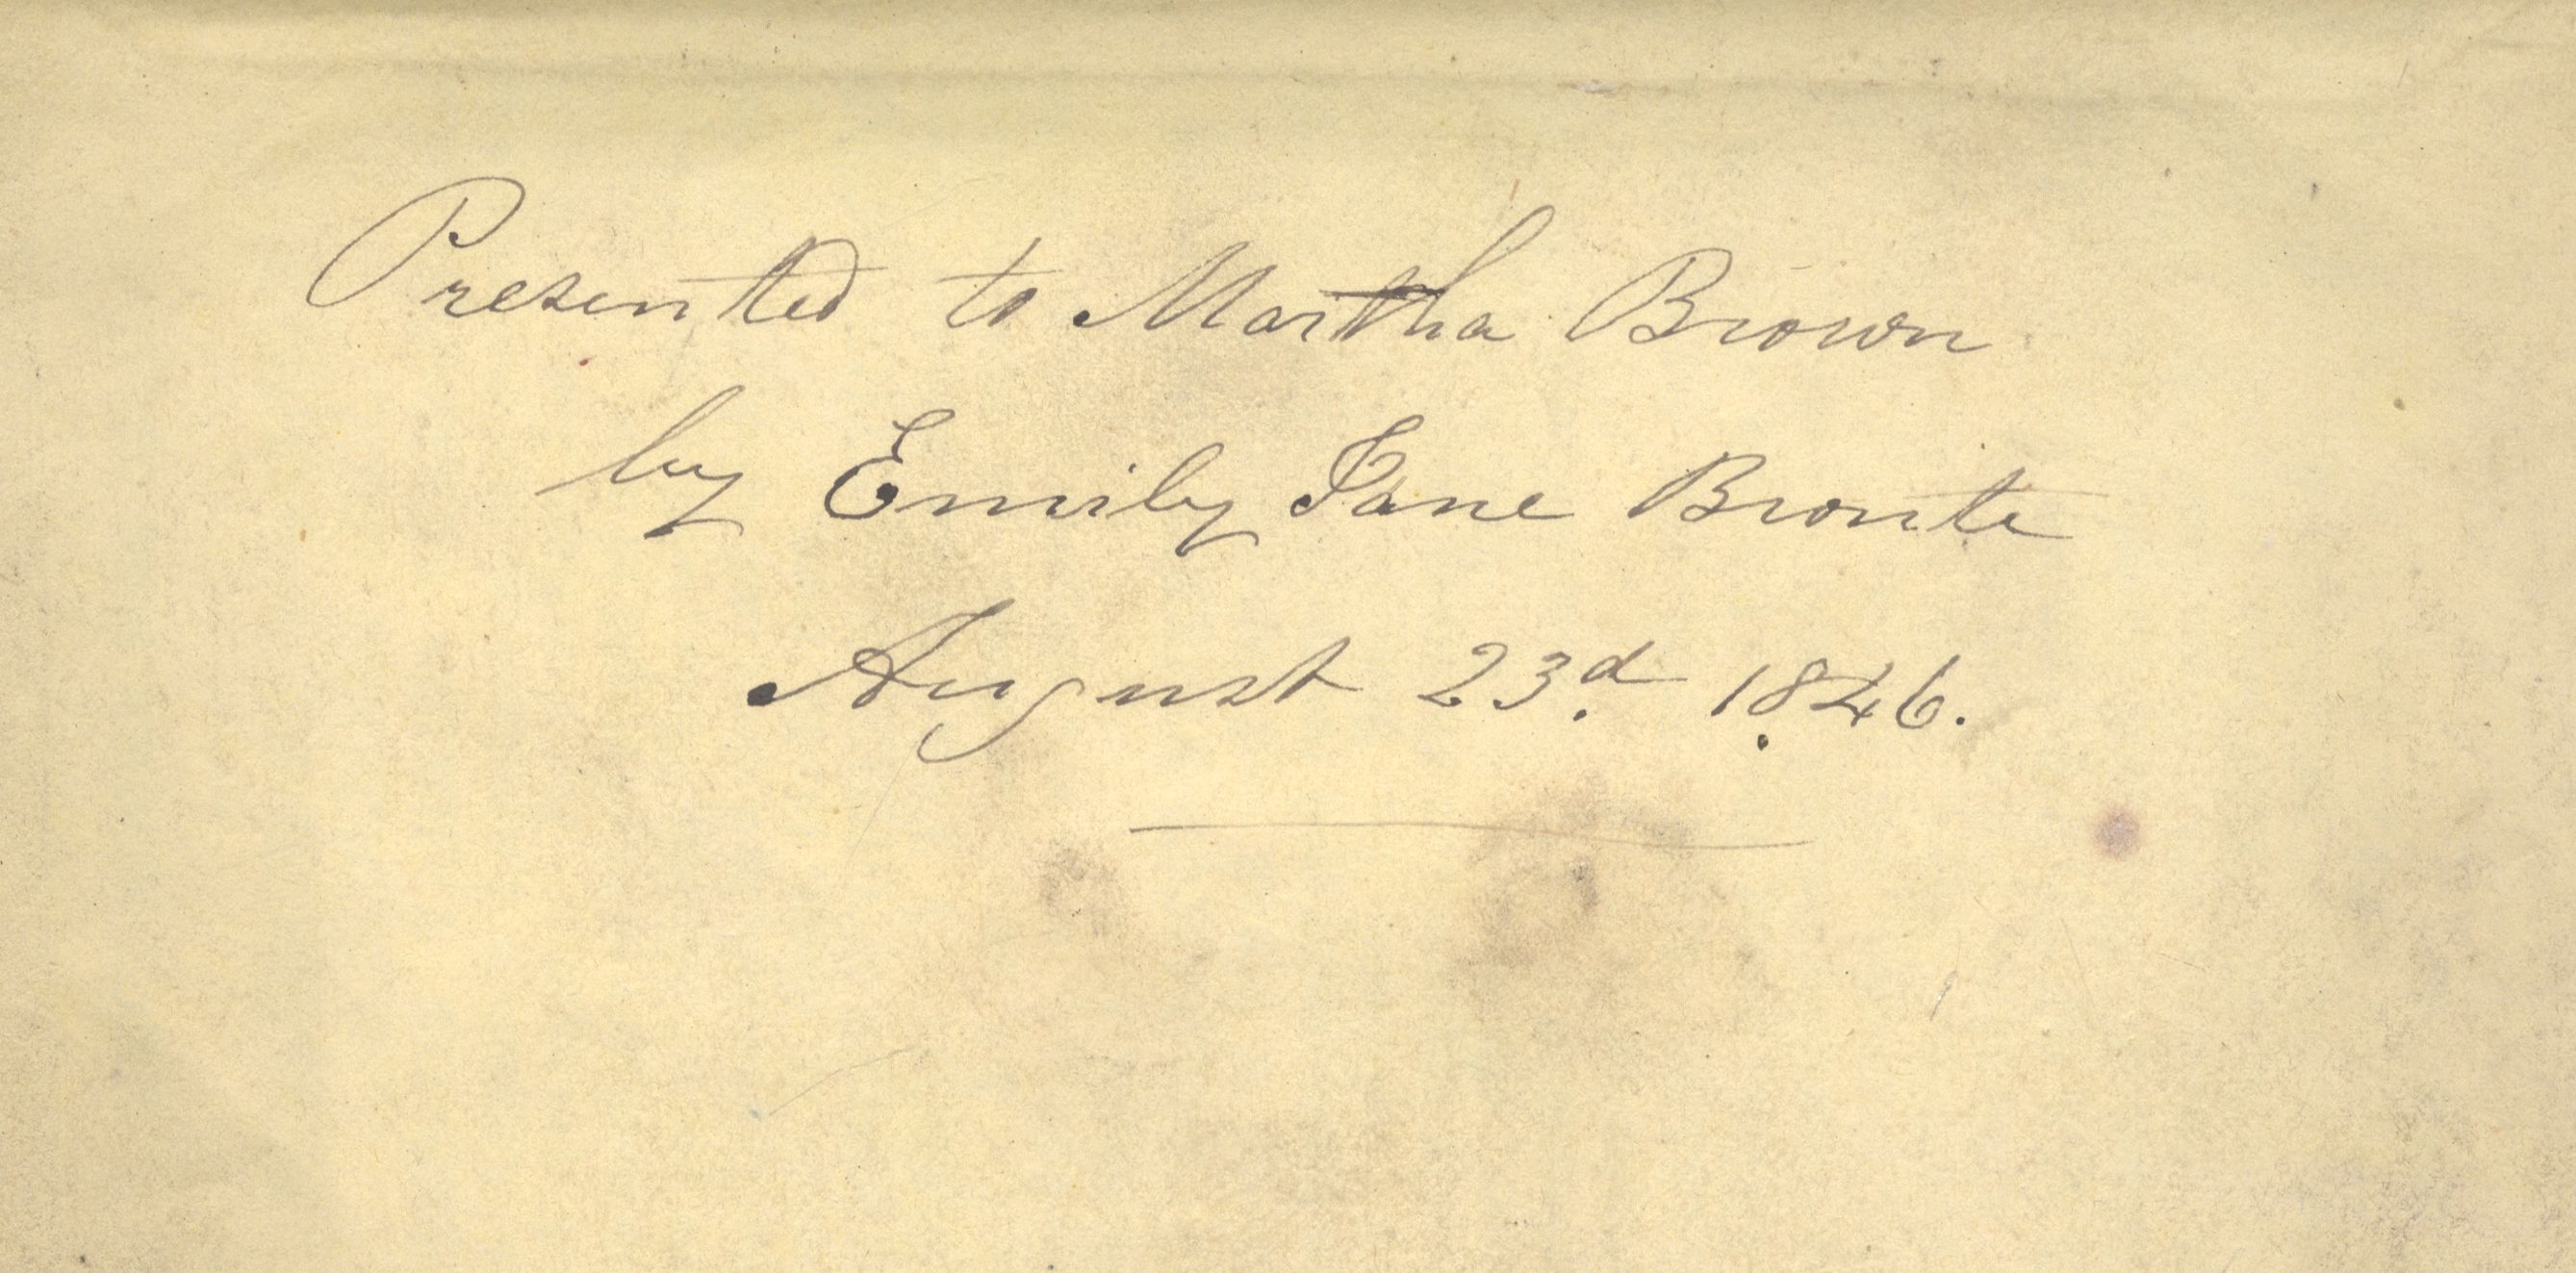 Presented to Martha Brown
by Emily Jane Bronte
August 23.d 1846.